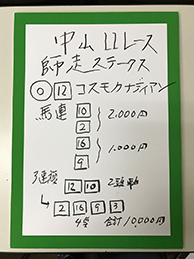 中山11レース
師走ステークス
◎ 12 コスモカナディアン
馬連 10
2 } 2.000円
16
9 } 1.000円
3連複 12 10 2頭軸
↳ 2 16 9 3
4点 合計10,000円